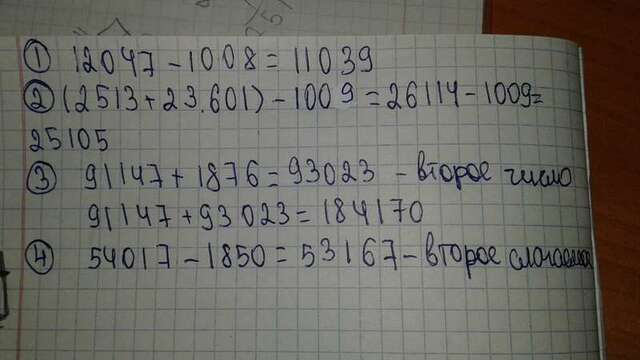 ① 12047 - 1008 = 11039
② (2513 + 23.601) - 1009 = 26114 - 1009 =
25105
③ 91147 + 1876 = 93023 - второе число
91147 + 93023 = 184170
④ 54017 - 1850 = 53167 - второе слагаемое